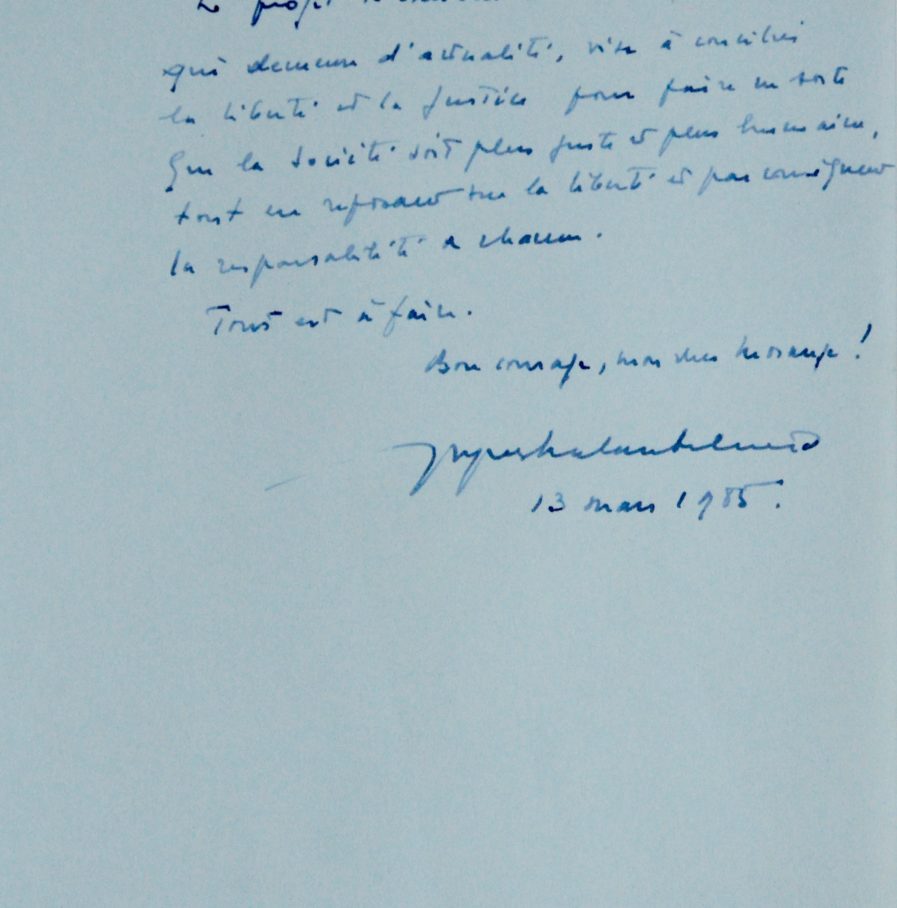 Le projet
qui demeure d'actualité, vise à concilier
la liberté et la justice pour faire en sorte
que la société soit plus juste et plus humaine,
tout en reposant sur la liberté et par conséquent
la responsabilité de chacun.
Tout est à faire.
Bon courage, mon cher Morange !
Jacques Chaban-Delmas
13 mars 1985.